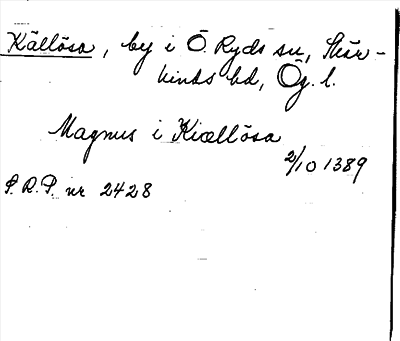 Källösa, by i Ö. Ryds sn, Skär-
kinds hd, Ög. l.
Magnus i Kiællösa
2/10 1389
S.R.P. nr 2428